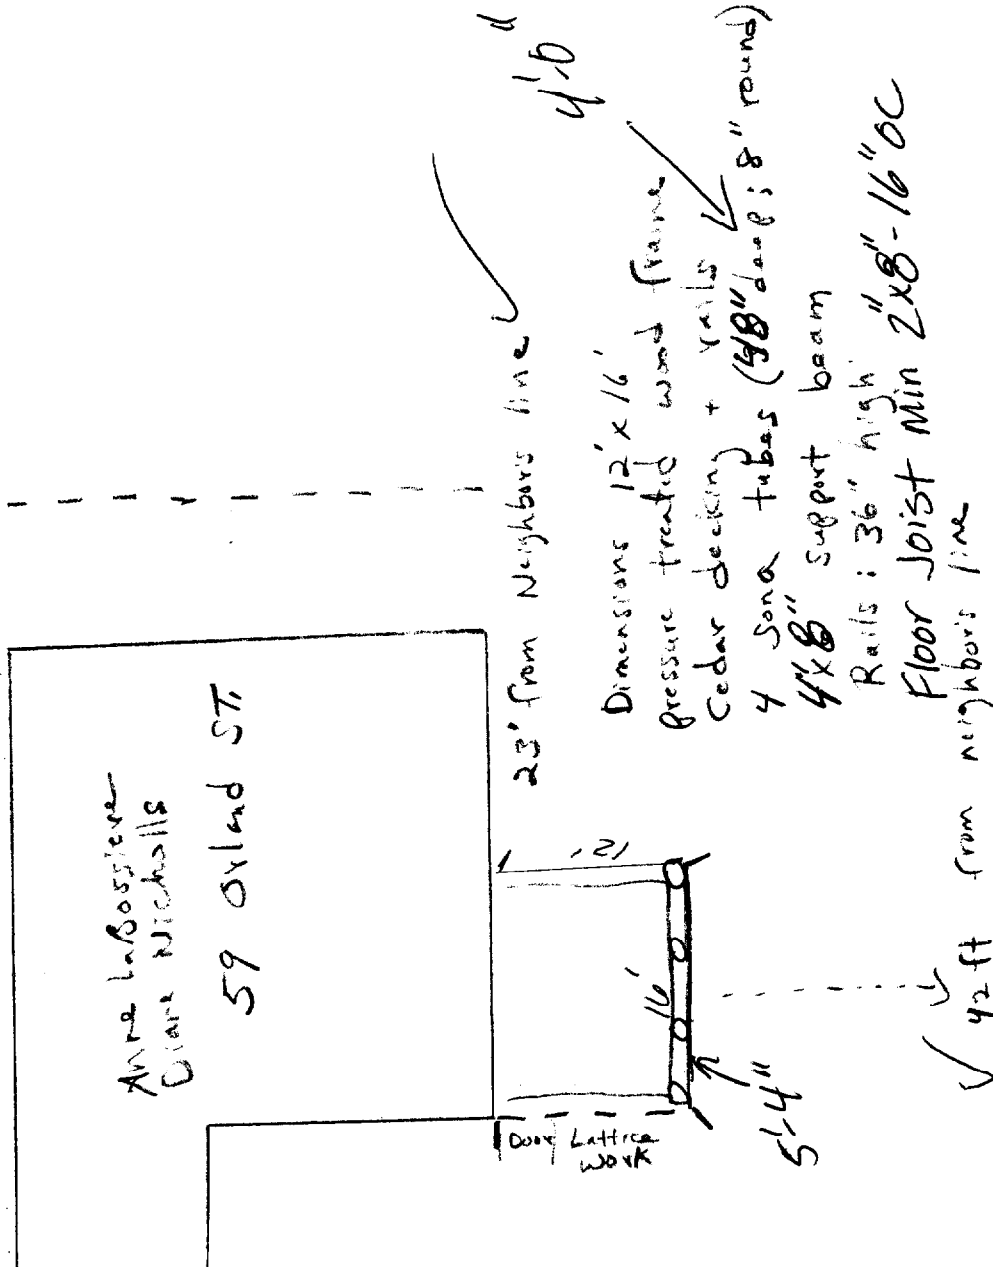 Anne LaBossiere
Diane Nicholls
59 Orland ST.
23' from Neighbors line
4'-0"
Dimensions 12' x 16'
pressure treated wood frame
Cedar decking + rails
4 sona tubes (48" deep; 8" round)
4"x8" support beam
Rails: 36" high
Floor Joist Min 2"x8"-16"OC
12'
16'
5'-4"
Door
Lattice
Work
42 ft from neighbor's line